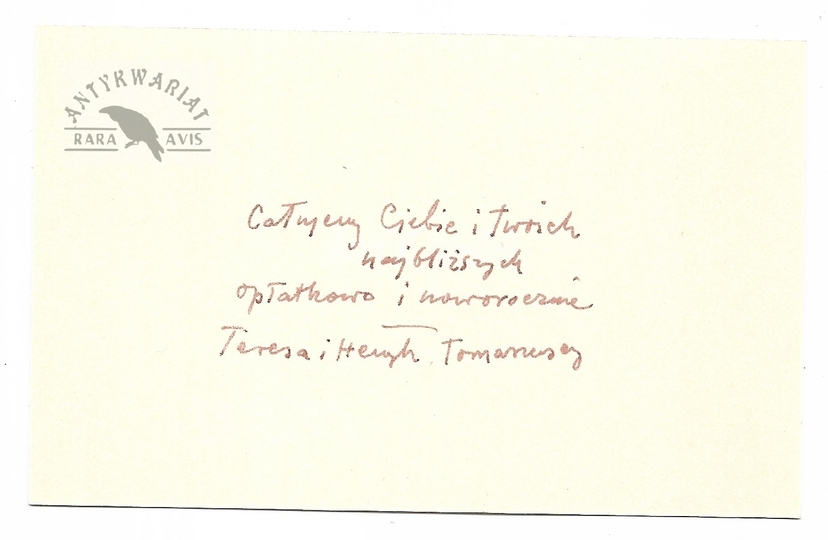 ANTYKWARIAT
RARA AVIS
Całujemy Ciebie i Twoich
najbliższych
opłatkowo i noworocznie
Teresa i Henryk Tomaszewscy